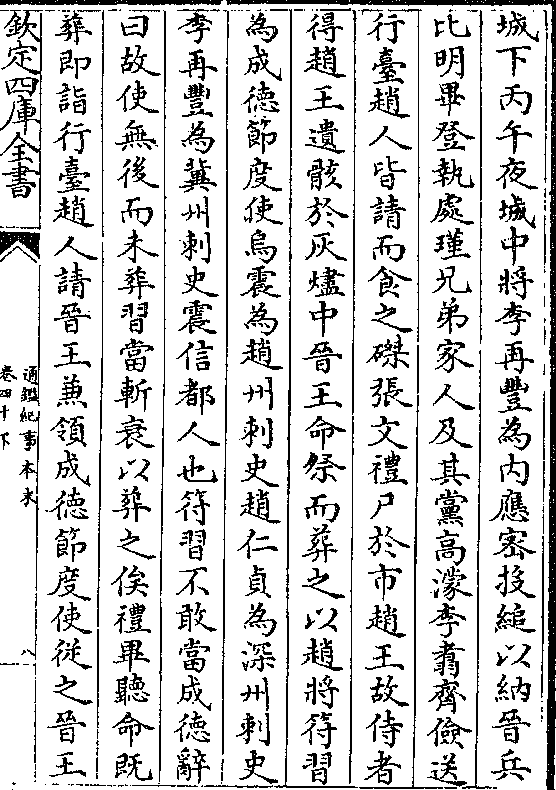 城下丙午夜城中將李再豐為内應宻投縋以納晉兵
比明畢登執處瑾兄弟家人及其黨高濛李翥齊儉送
行臺趙人皆請而食之磔張文禮尸於市趙王故侍者
得趙王遺骸於灰燼中晉王命祭而葬之以趙將符習
為成德節度使烏震為趙州刺史趙仁貞為深州刺史
李再豐為冀州刺史震信都人也符習不敢當成德辭
曰故使無後而未葬習當斬衰以葬之俟禮畢聽命既
葬即詣行臺趙人請晉王兼領成德節度使從之晉王
欽定四庫全書
通鑑紀事本末
卷四十下
八